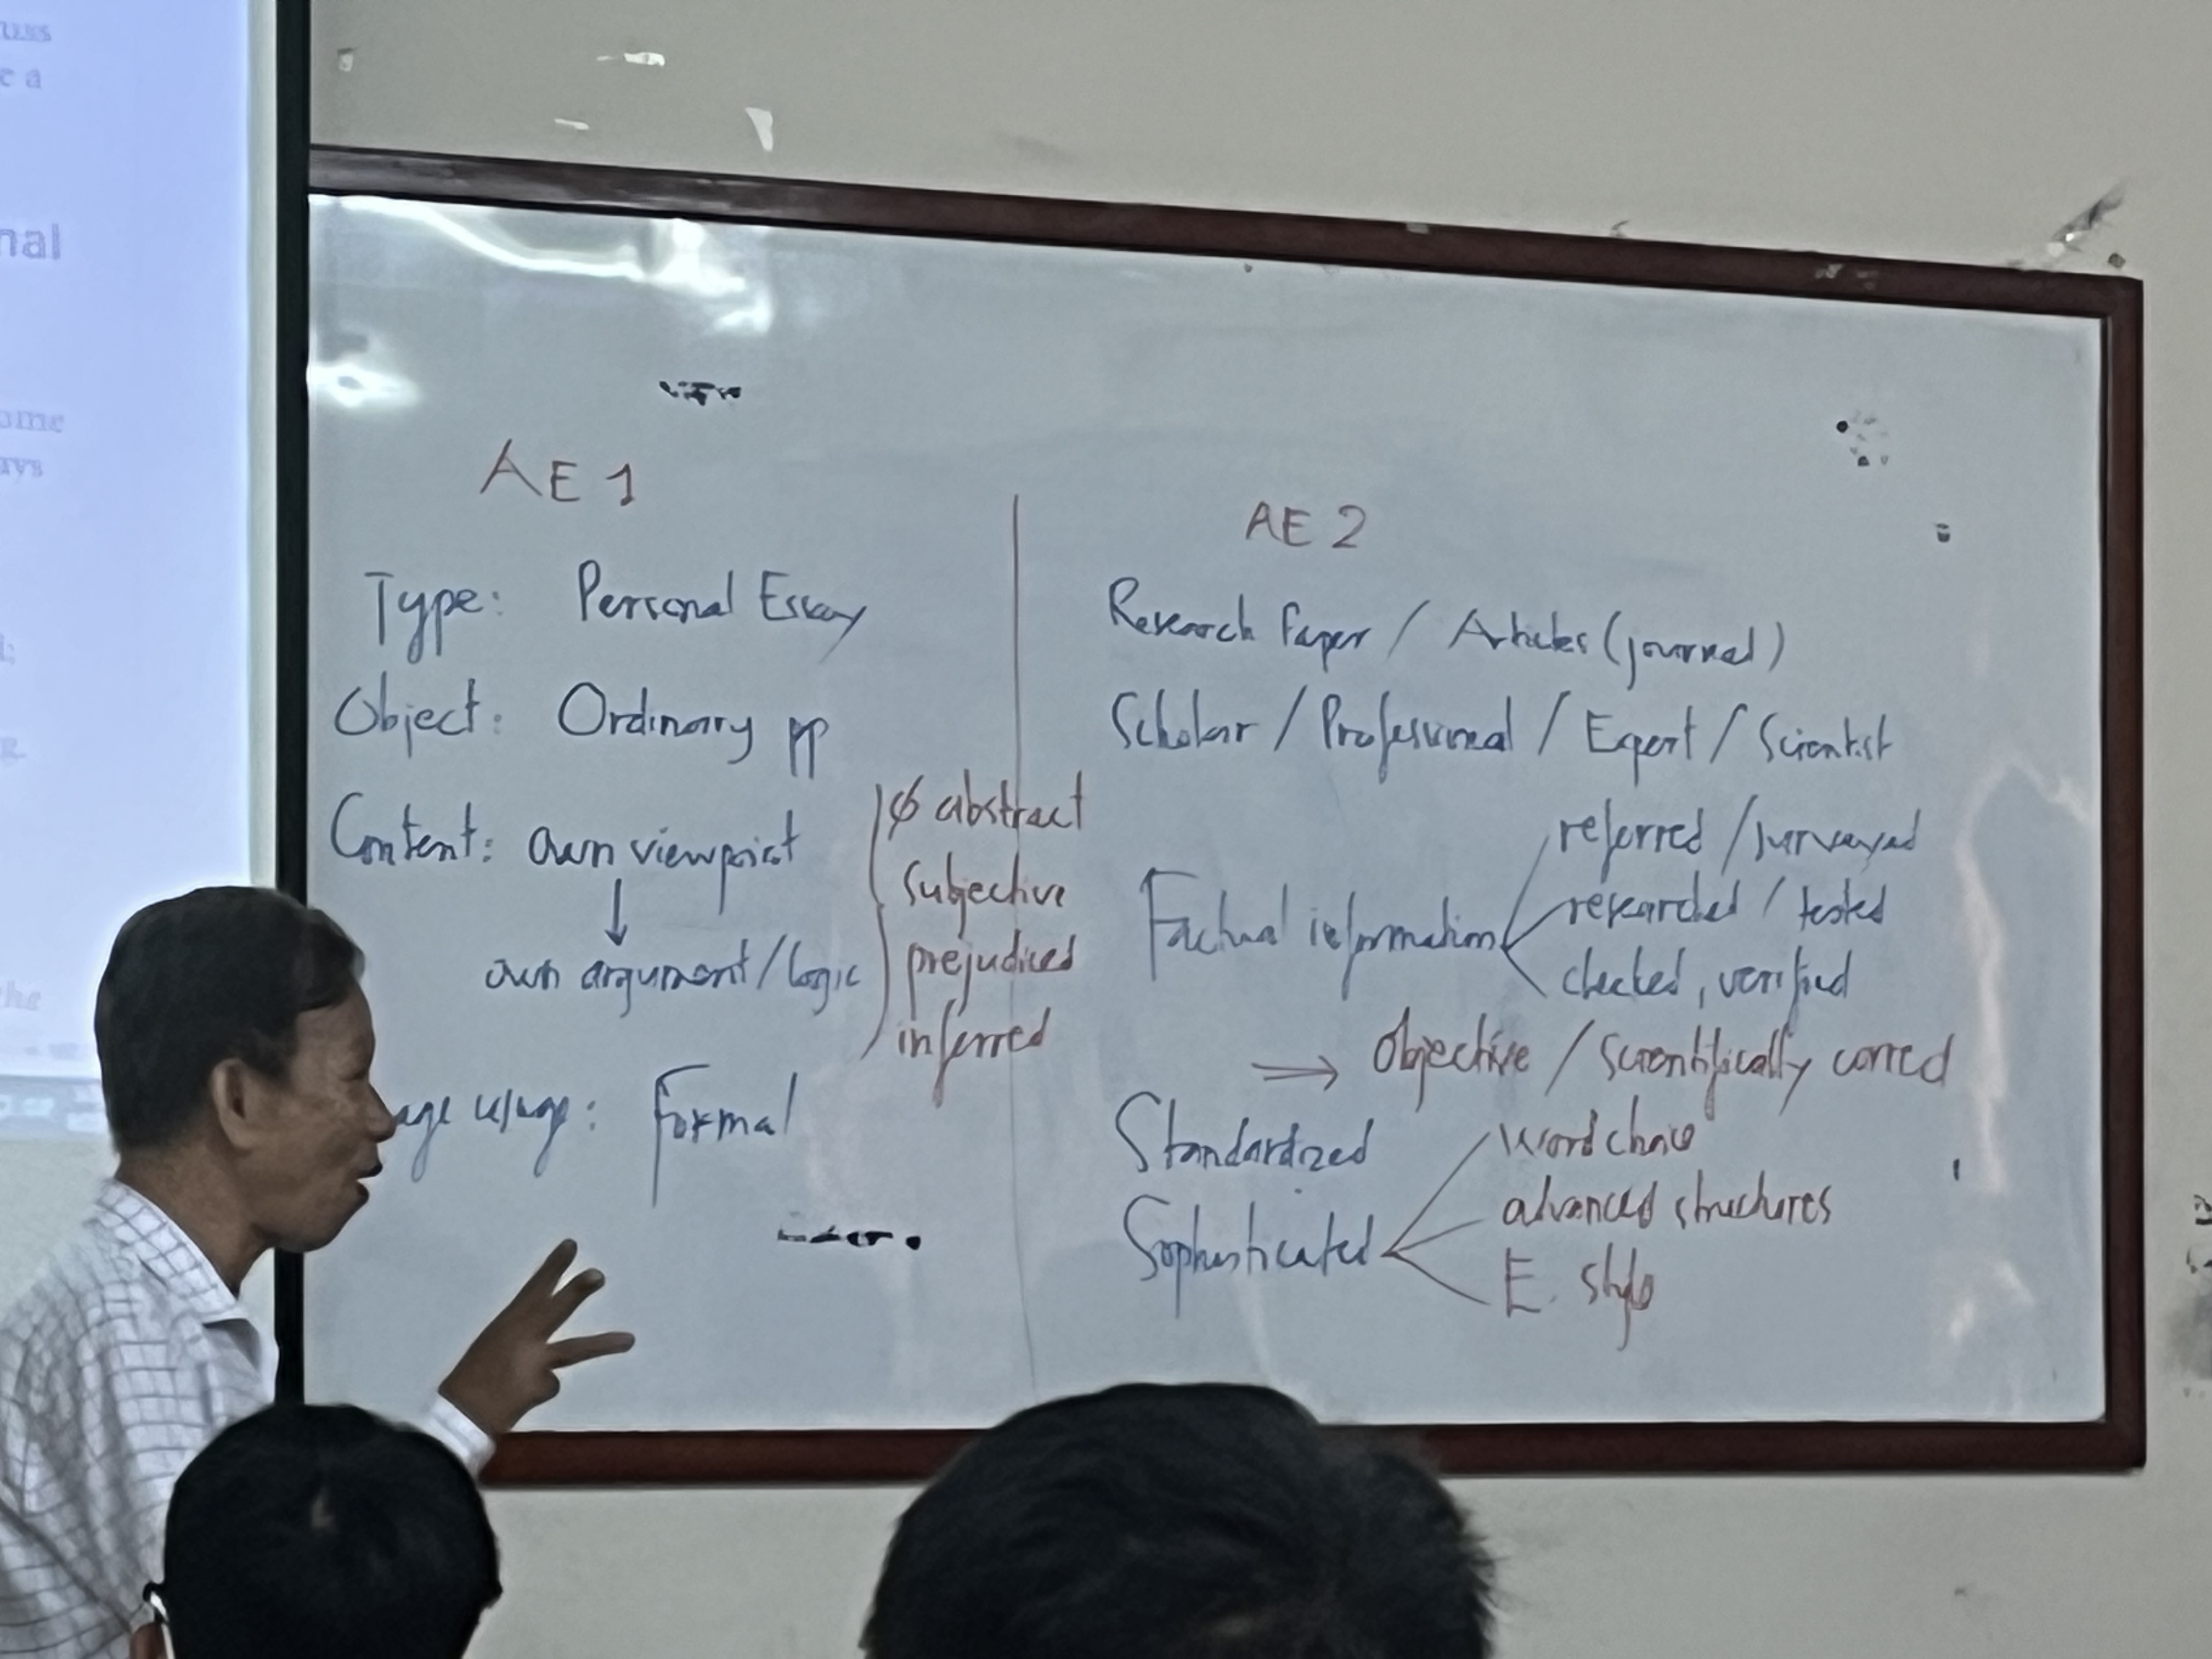 nal
AE 1
Type: Personal Essay
Object: Ordinary pp
Content: own viewpoint
↓
own argument/logic
ϕ abstract
subjective
prejudiced
inferred
age usage: Formal
AE 2
Research Paper / Articles (journal)
Scholar / Professional / Expert / Scientist
Factual information
referred / surveyed
researched / tested
checked, verified
⇒ Objective / scientifically correct
Standardized
Sophisticated
word choice
advanced structures
E. style